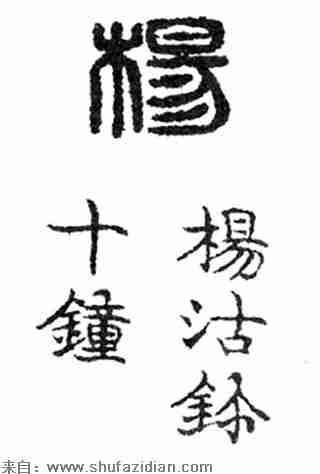 楊
楊沽鉩
十鐘
来自：www.shufazidian.com